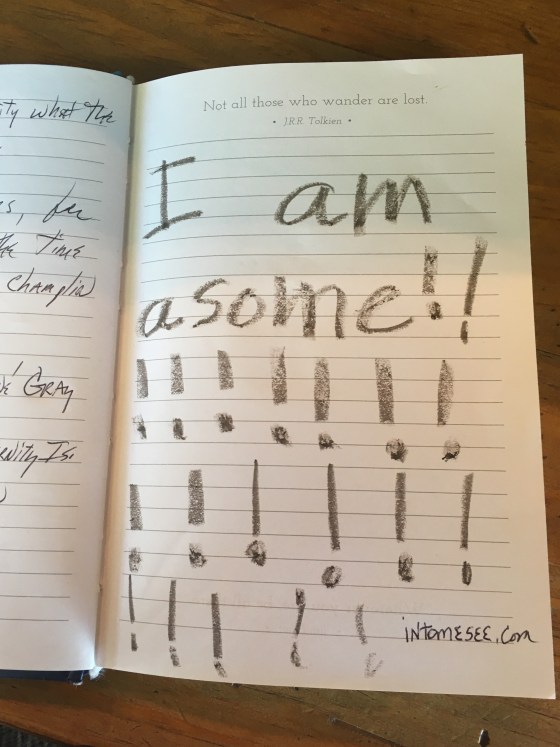 what the
the Time
Champlin
Gray
Is.
Not all those who wander are lost.
• J.R.R. Tolkien •
I am
asome!!
!!!!!!!
!!!!!!
!!!!!
intomesee.com